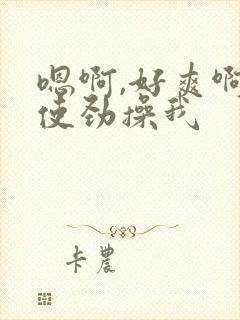 嗯啊,好爽啊
使劲操我
卡農